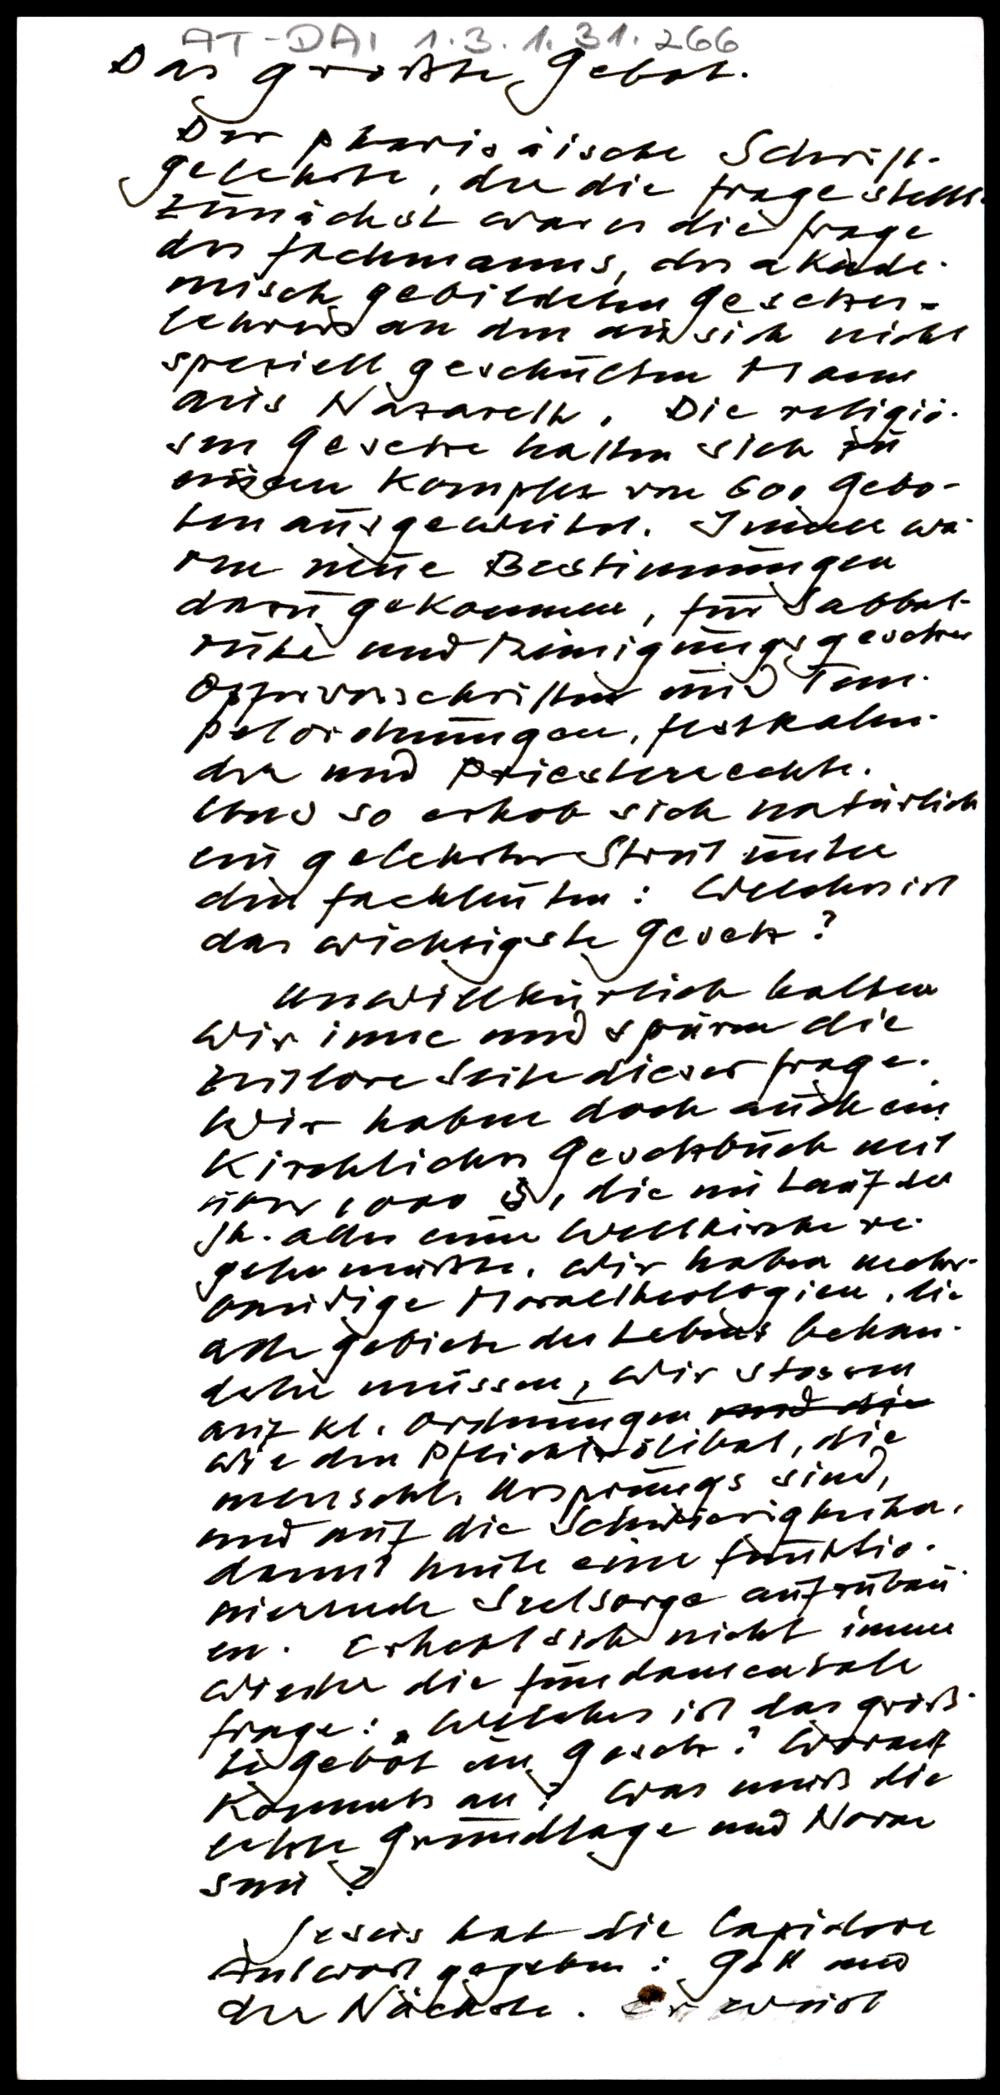 AT-DAI 1.3.1.31.266
Das größte Gebot.
Der pharisäische Schrift-
gelehrte, der die Frage stellt.
Zunächst war es die Frage
des Fachmanns, des akade-
misch gebildeten Gesetzes-
lehrers an den an sich nicht
speziell geschulten Mann
aus Nazareth. Die religiö-
sen Gesetze hatten sich zu
einem Komplex von 600 Gebo-
ten ausgeweitet. Immer wa-
ren neue Bestimmungen
dazu gekommen, für Sabbat-
ruhe und Reinigungsgesetze
Opfervorschriften und Tem-
pelordnungen, Festkalen-
der und Priesterrechte.
Und so erhob sich natürlich
ein gelehrter Streit unter
den Fachleuten: Welches ist
das wichtigste Gesetz?
Unwillkürlich halten
wir inne und spüren die
zeitlose Seite dieser Frage.
Wir haben doch auch ein
kirchliches Gesetzbuch mit
über 1000 §, die im Lauf der
Jh. alles einer Weltkirche re-
geln mußte. Wir haben mehr-
bändige Moraltheologien, die
alle Gebiete des Lebens behan-
deln müssen, wir stossen
auf kl. Ordnungen und die
wie den Pflichtzölibat, die
menschl. Ursprungs sind,
und auf die Schwierigkeiten,
damit heute eine funktio-
nierende Seelsorge aufzubau-
en. Erhebt sich nicht immer
wieder die fundamentale
Frage: "Welches ist das größ-
te Gebot im Gesetz? Worauf
kommts an? Was muß die
letzte Grundlage und Norm
sein?
Jesus hat die lapidare
Antwort gegeben: Gott und
der Nächste. Er weist